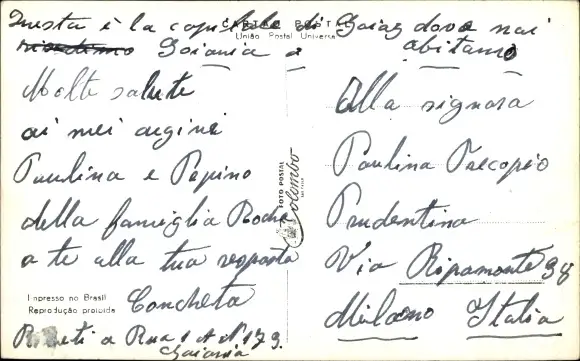 Questa è la capitale di Goiaz dove noi
CARTÃO POSTAL
União Postal Universal
Goiania abitiamo
Molte salute
ai mei cugini
Paulina e Pepino
della famiglia Rocha
a te alla tua resposta
Concheta
a Rua 1 A Nº 179.
Goiania
Impresso no Brasil
Reprodução proibida
FOTO POSTAL
Colombo
Alla signora
Paulina
Prudentina
Via Ripamonte 98
Milano Italia